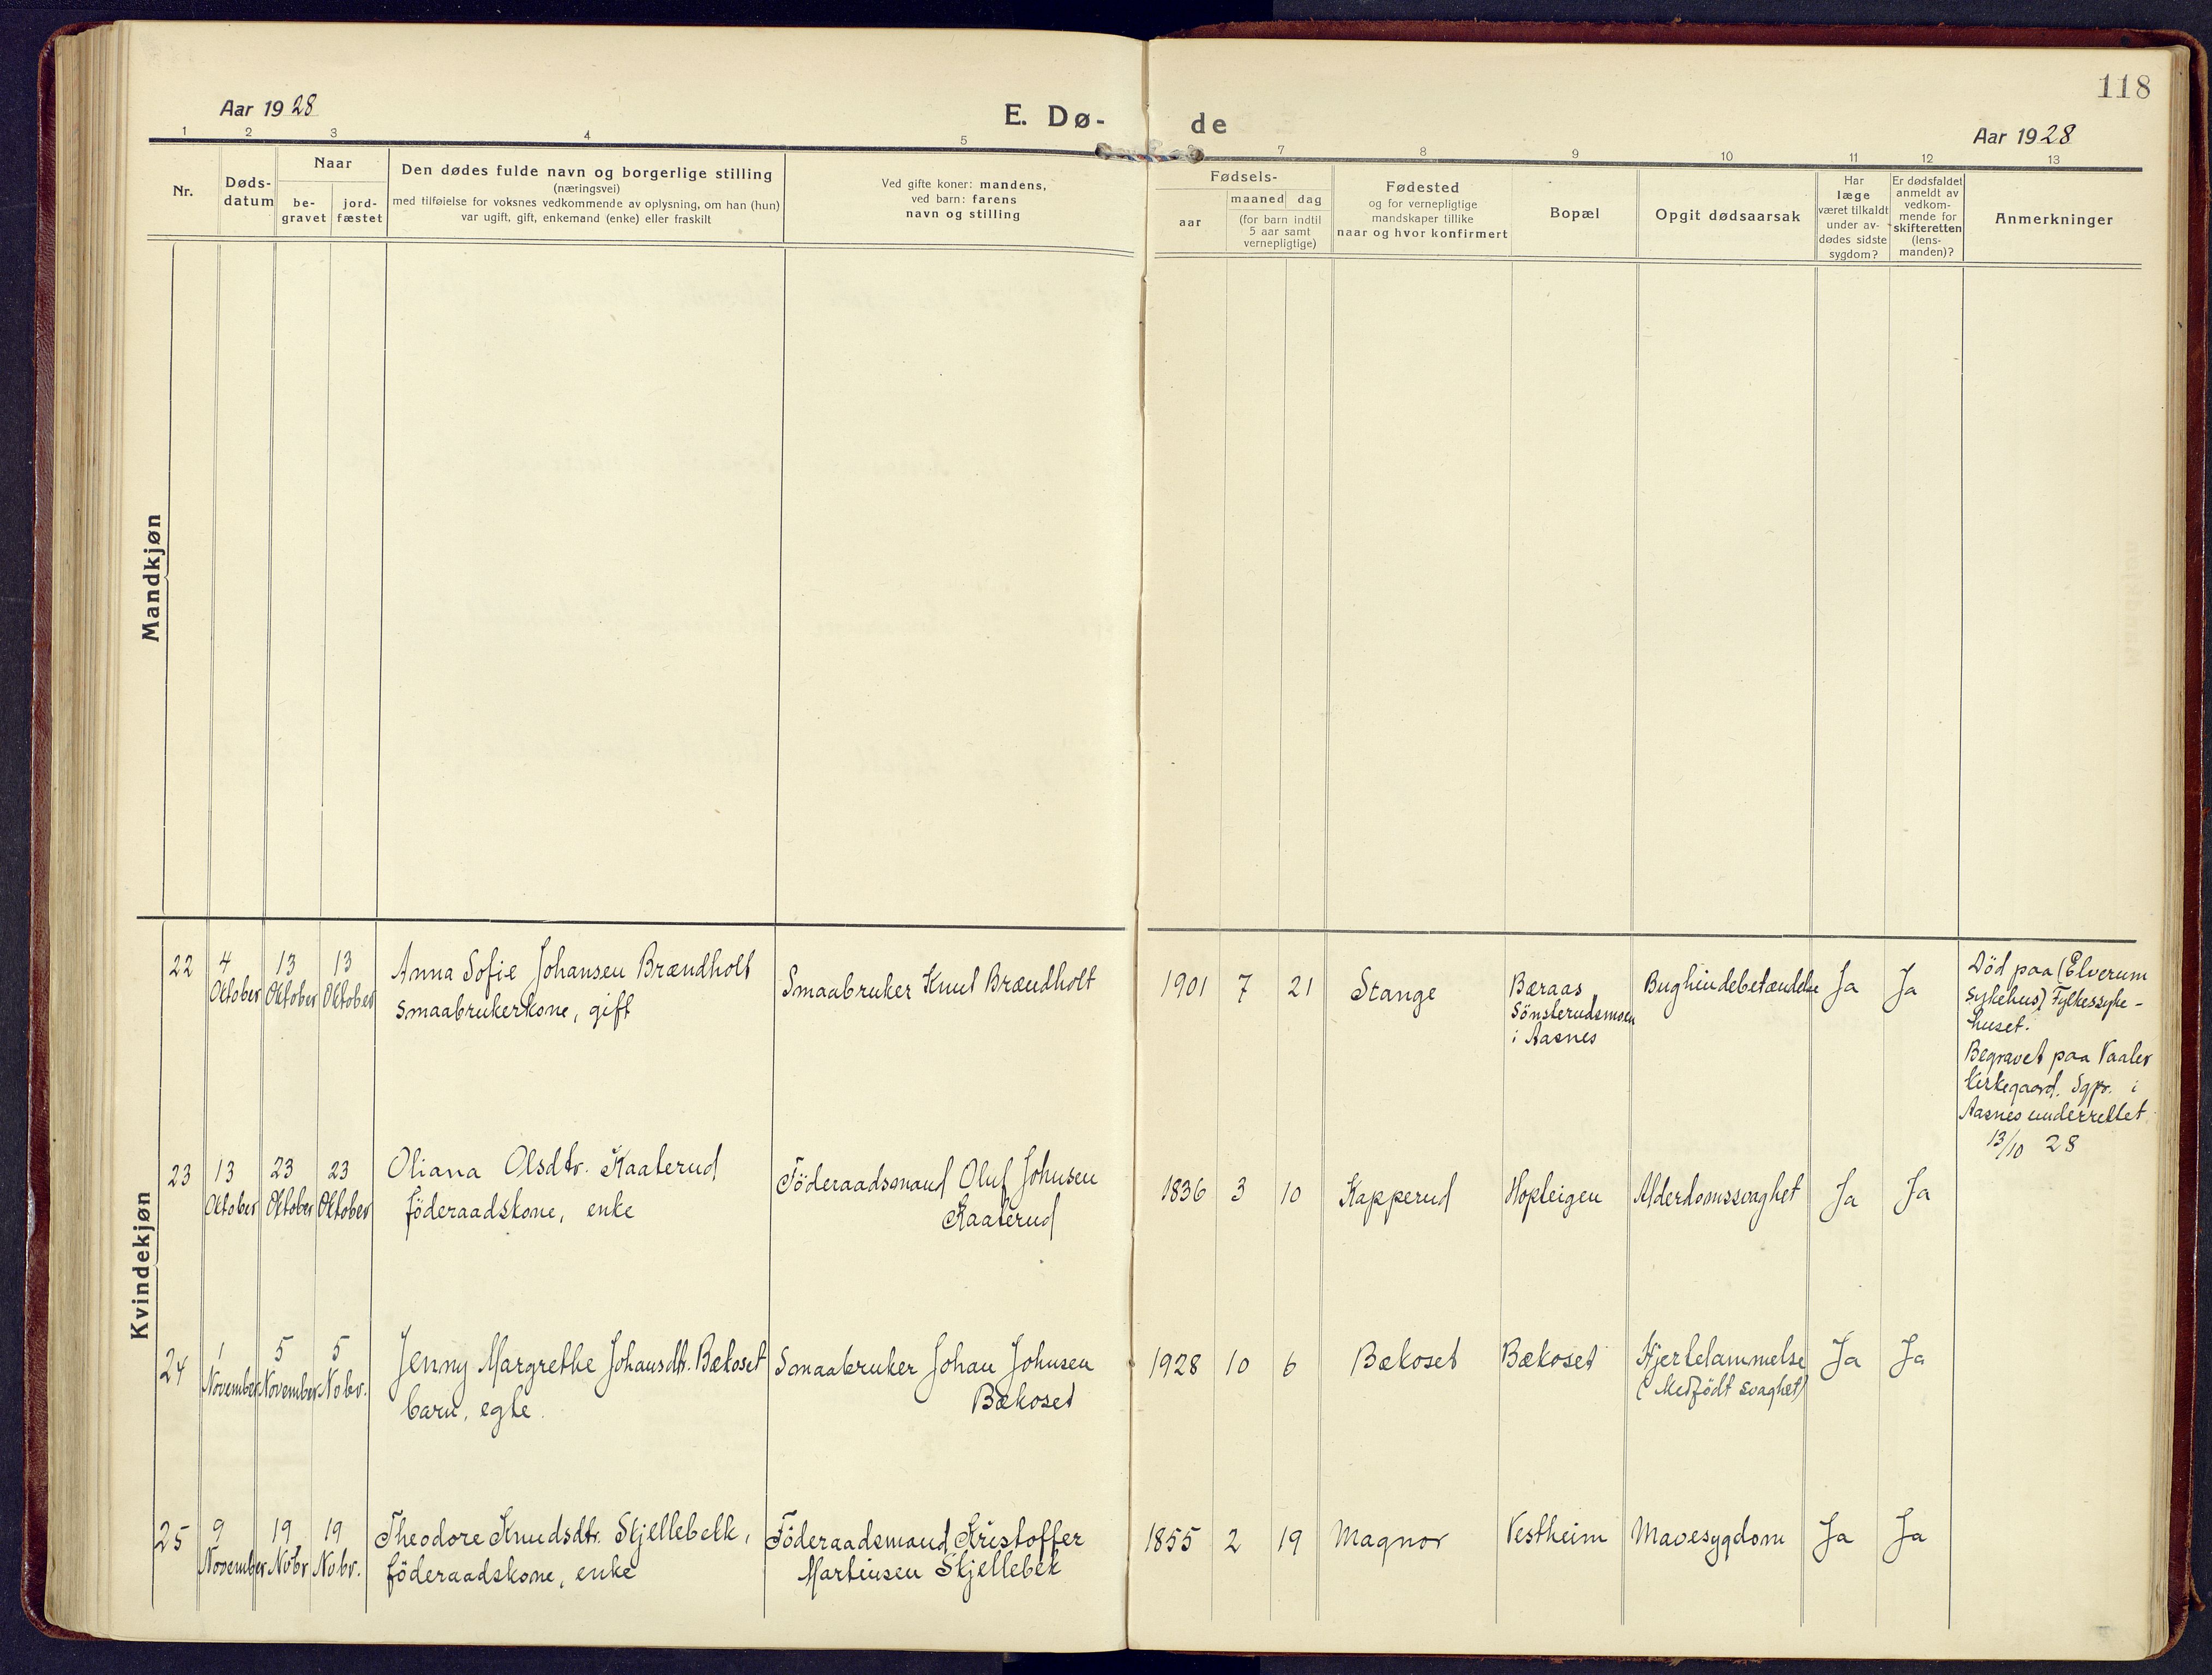 118
Aar 1928
E. Dø-
de
Aar 1928
1 2 3 4 5 7 8 9 10 11 12 13
Nr.
Døds-
datum
Naar
be-
gravet
jord-
fæstet
Den dødes fulde navn og borgerlige stilling
(næringsvei)
med tilføielse for voksnes vedkommende av oplysning, om han (hun)
var ugift, gift, enkemand (enke) eller fraskilt
Ved gifte koner: mandens,
ved barn: farens
navn og stilling
Fødsels-
aar
maaned dag
(for barn indtil
5 aar samt
vernepligtige)
Fødested
og for vernepligtige
mandskaper tillike
naar og hvor konfirmert
Bopæl
Opgit dødsaarsak
Har
læge
været tilkaldt
under av-
dødes sidste
sygdom?
Er dødsfaldet
anmeldt av
vedkom-
mende for
skifteretten
(lens-
manden)?
Anmerkninger
Mandkjøn
Kvindekjøn
22
4
Oktober
13
Oktober
13
Oktober
Anna Sofie Johansen Brændholt
smaabrukerkone, gift
Smaabruker Knut Brændholt
1901 7 21
Stange
Bæraas
Sönsterudsmoen
i Aasnes
Bughindebetændelse
Ja
Ja
Död paa (Elverum
sykehus) Fylkessyke-
huset.
Begravet paa Vaaler
kirkegaard. Sgpr. i
Aasnes underrettet
13/10 28
23
13
Oktober
23
Oktober
23
Oktober
Oliana Olsdtr. Kaaterud
föderaadskone, enke
Föderaadsmand Oluf Johnsen
Kaaterud
1836 3 10
Kapperud
Hopleigen
Alderdomssvaghet
Ja
Ja
24
1
November
5
November
5
Nobr.
Jenny Margrethe Johansdtr. Bækoset
barn, egte.
Smaabruker Johan Johnsen
Bækoset
1928 10 6
Bækoset
Bækoset
Hjertelammelse
(Medfödt svaghet)
Ja
Ja
25
9
November
19
Nobr
19
Nobr.
Theodore Knudsdtr. Skjellebekk,
föderaadskone, enke
Föderaadsmand Kristoffer
Martinsen Skjellebek
1855 2 19
Magnor
Vestheim
Mavesygdom
Ja
Ja